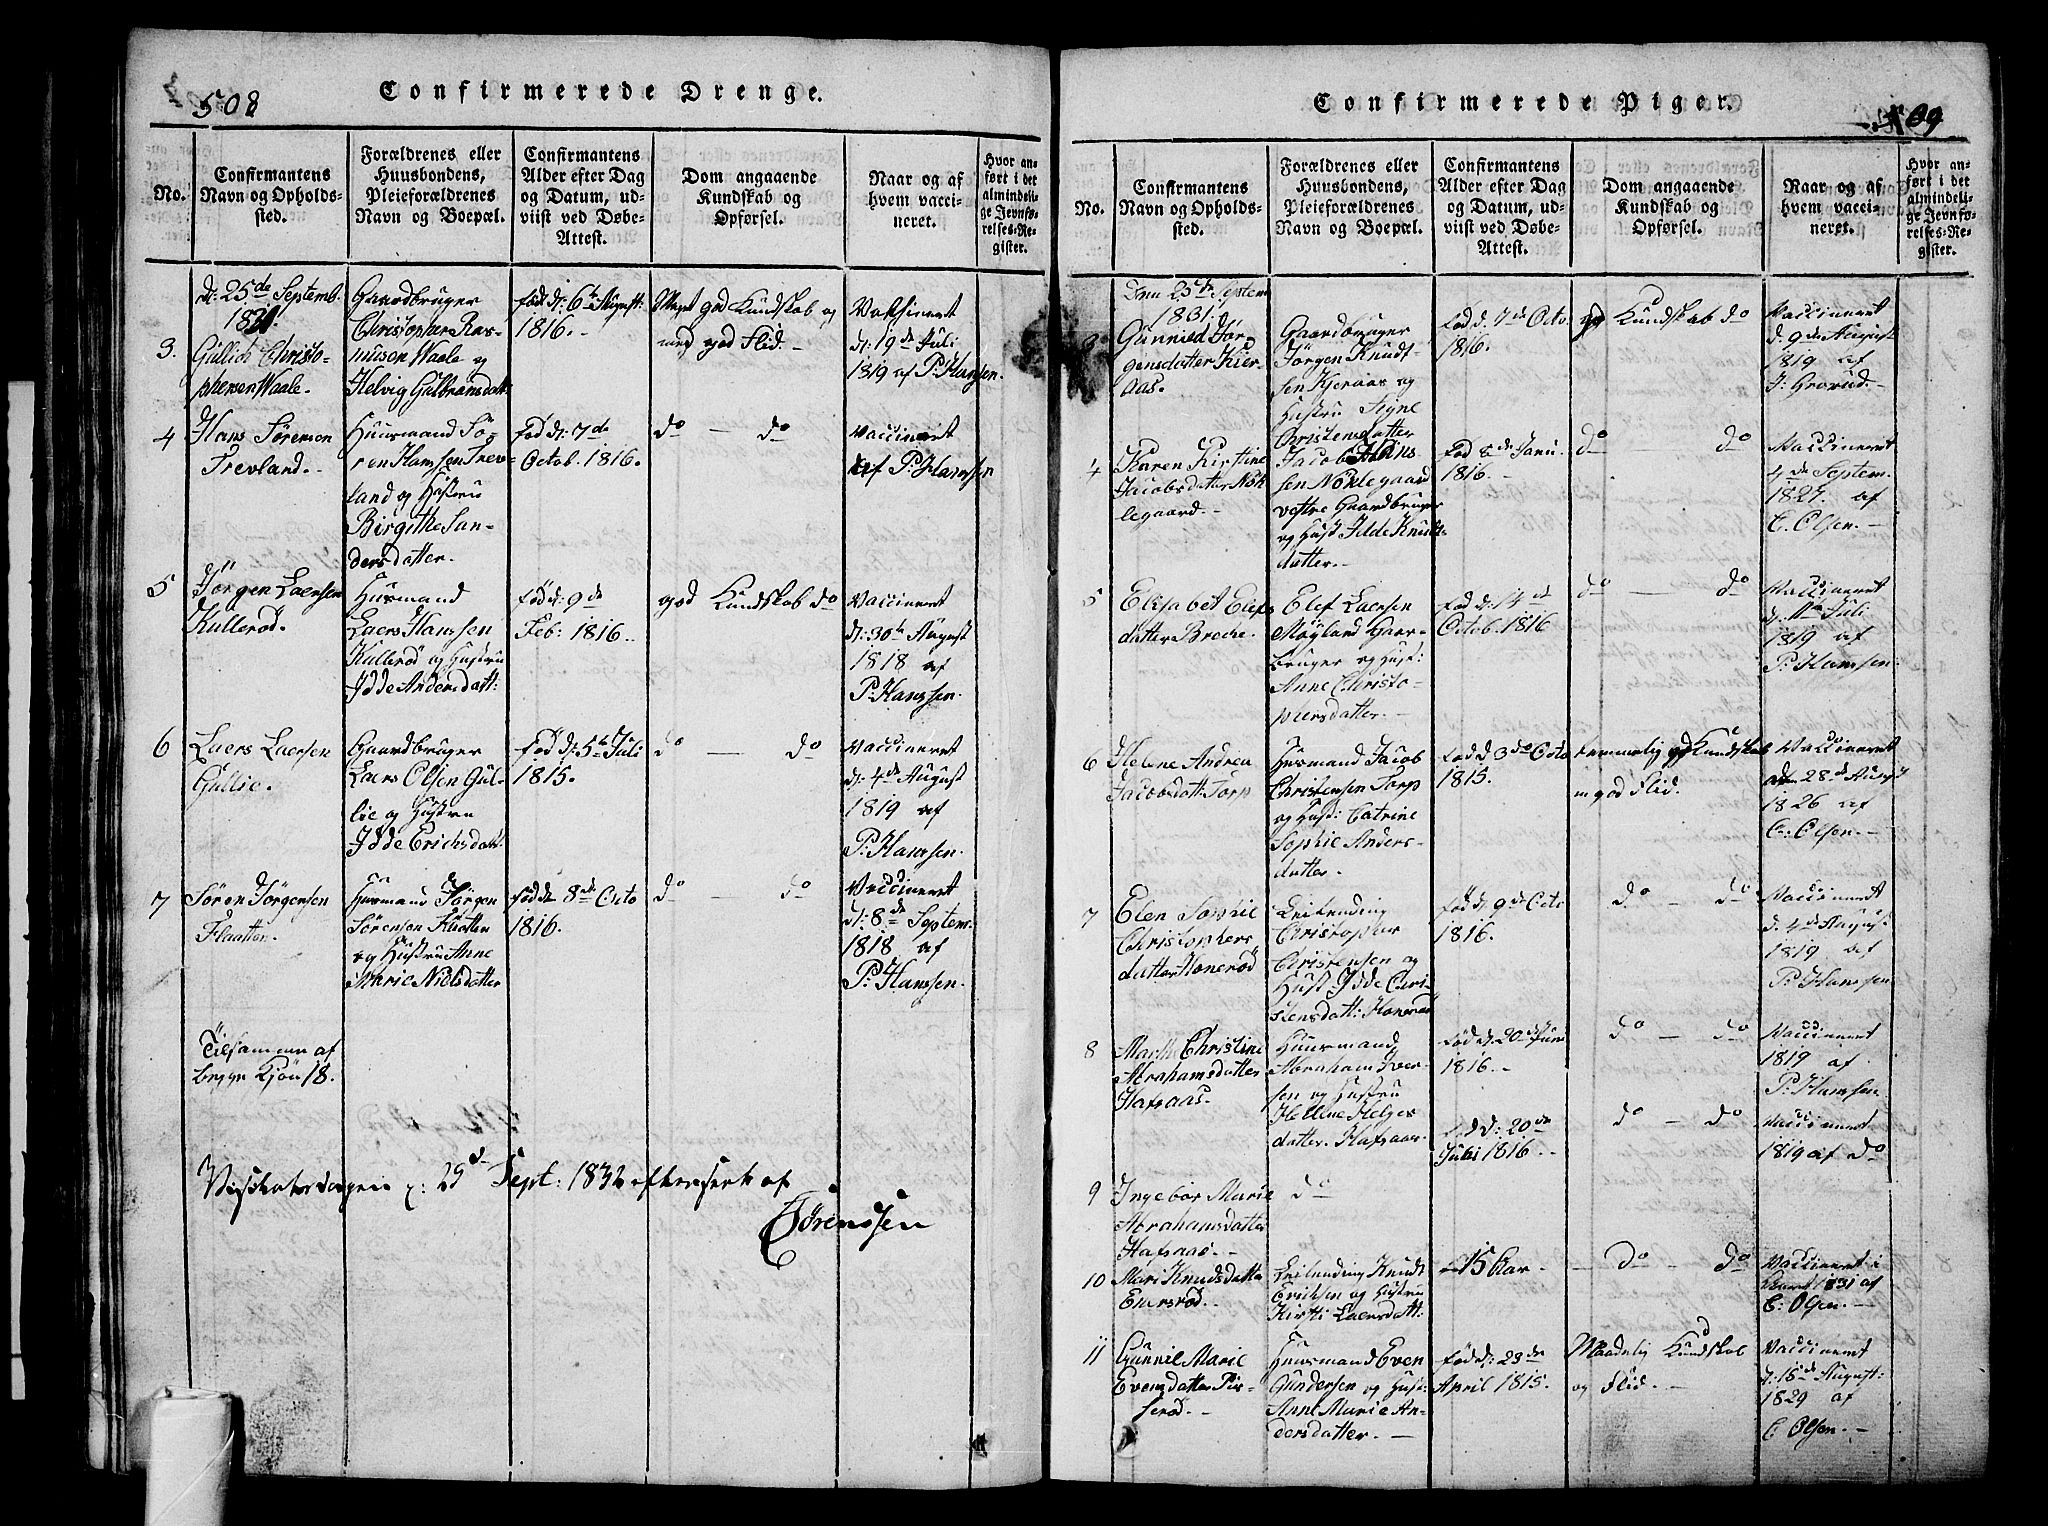 508
Confirmerede Drenge.
No.
Confirmantens
Navn og Opholds-
sted.
Forældrenes eller
Huusbondens,
Pleieforældrenes
Navn og Boepæl.
Confirmantens
Alder efter Dag
og Datum, ud-
viist ved Døbe-
Attest.
Dom angaaende
Kundskab og
Opførsel.
Naar og af
hvem vacci-
neret.
Hvor an-
ført i det
almindeli-
ge Jevnfø-
relses-Re-
gister.
d: 25de Septemb.
1831.
3.
Gullich Christo-
phersen Waale.
Gaardbruger
Christopher Ras-
musen Waale og
Helvig Gulbransdatt:
Født d: 6te August:
1816.
Meget god Kundskab og
meget god Flid.
Vaksineret
d: 19de Juli
1819 af P: Hanssen.
4
Hans Sørensen
Trevland.
Huusmand Sø-
ren Hanssen Trev-
land og Hustru
Birgithe San-
dersdatter.
Fød d: 7de
Octob. 1816.
do — do
Vaccineret
af P: Hanssen
5
Jørgen Laersen
Kullerød.
Husmand
Laers Hanssen
Kullerød og Hustru
Idde Andersdatt:
Fød d: 9de
Feb: 1816.
god Kundskab do
Vaccineret
d: 30te August
1818 af
P: Hanssen.
6
Laers Laersen
Gullie.
Gaardbruger
Laers Olsen Gul-
lie og Hustru
Idde Erichsdatt:
Fød d: 5te Juli
1815.
do — do
Vaccineret
d: 4de August
1819 af
P: Hanssen.
7
Søren Jørgensen
Flaatten.
Husmand Jørgen
Sørensen Flaatten
og Hustru Anne
Marie Nielsdatter
Fød d 8de Octo
1816.
do — do
Vaccineret
d: 8de Septem.
1818 af
P: Hanssen.
Tilsammen af
begge Kjøn 18.
29de Sept: 1832 efterseet af
Sørenssen
509
Confirmerede Piger.
No.
Confirmantens
Navn og Opholds-
sted.
Forældrenes eller
Huusbondens,
Pleieforældrenes
Navn og Boepæl.
Confirmantens
Alder efter Dag
og Datum, ud-
viist ved Døbe-
Attest.
Dom angaaende
Kundskab og
Opførsel.
Naar og af
hvem vacci-
neret.
Hvor an-
ført i det
almindeli-
ge Jevnfø-
relses-Re-
gister.
Den 25de Septem
1831.
3
Gunnied Jør-
gensdatter Kier-
aas.
Gaardbruger
Jørgen Knudt-
sen Kjeraas og
Hustru Signe
Christensdatter
Fød d. 7de Octo.
1816.
god Kundskab do
Vaccineret
d. 9de August
1819 af
J: Grorud.
4
Karen Kirstine
Jacobsdatter Nøk-
legaard.
Jacob Hans-
sen Nøklegaard
vestre Gaardbruger
og Hust Idde Knudt-
datter.
Fød 8de Janu.
1816.
do — do
Vaccineret
4de Septem.
1827. af
C. Olsen.
5
Elisabet Elefs
datter Breche.
Elef Laersen
Møyland Gaar-
bruger og Hust:
Anne Christo-
phersdatter.
Fød d: 14de
Octob. 1816
do — do
Vaccineret
Juli
1819 af
P: Hanssen.
6
Helene Andrea
Jacobsdatt: Torp
Husmand Jacob
Christensen Torp
og Hust: Catrine
Sophie Anders-
datter.
Fød d 3de Octo
1815.
temmelig god Kundskab
m god Flid.
Vaccineret
den 28de August
1826 af
C: Olsen.
7
Elen Sophie
Christophers
datter Honerød
Leilending
Christopher
Christensen og
Hust Idde Chri-
stensdatt: Honerød
Fød d. 9de Octo
1816.
do — do
Vaccineret
d. 4de August
1819 af
P: Hanssen
8
Marthe Christine
Abrahamsdatter
Hafsaas.
Huusmand
Abraham Iver-
sen og Hustru
Hellene Helges
datter. Hafsaas.
Fød d. 20de Juni
1816.
do — do
Vaccineret
1819 af
P: Hanssen
9
Ingebor Marie
Abrahamsdatter
Hafsaas.
do
d: 20de
Juli 1816.
do — do
Vaccineret
1819 af do
10
Mari Knudsdatter
Enersrød.
Leilending Knudt
Erichsen og Hustru
Kirsti Laersdatt:
15 Aar.
do do
Vaccineret i
1831 af
C: Olsen.
11
Gunnil Marie
Evensdatter Pir-
serød.
Huusmand Even
Gundersen og Hust:
Anne Marie An-
dersdatter.
Fød d: 23de
April 1815.
Maadelig Kundskab
og Flid.
Vaccineret
d: 15de August:
1829 af
C Olsen.